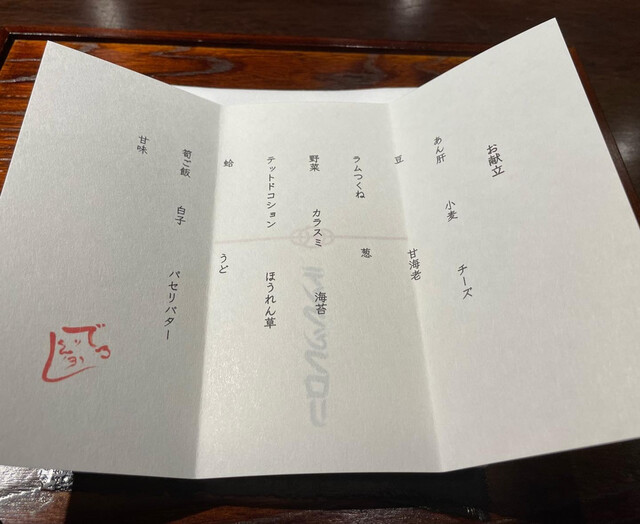 お献立
あん肝 小麦 チーズ
豆 甘海老
ラムつくね 葱
野菜 カラスミ 海苔
テットドコション ほうれん草
蛤 うど
筍ご飯 白子 パセリバター
甘味